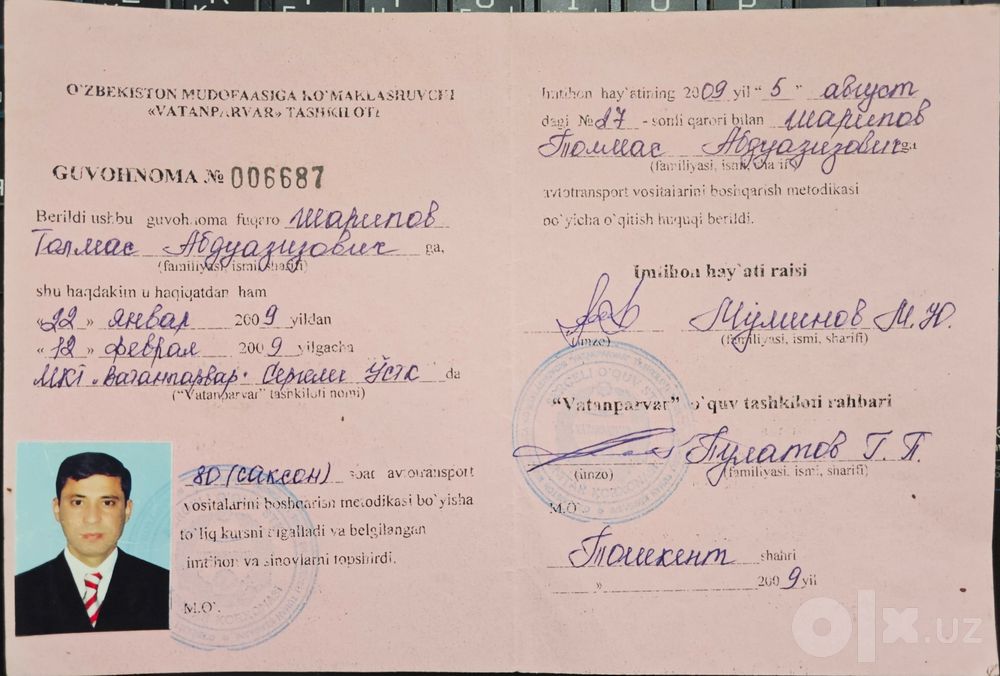 O'ZBEKISTON MUDOFAASIGA KO'MAKLASHUVCHI
«VATANPARVAR» TASHKILOTI
GUVOHNOMA № 006687
Berildi ushbu guvohnoma fuqaro Шарипов
Толмас Абдуазизович ga,
(familiyasi, ismi, sharifi)
shu haqdakim u haqiqatdan ham
«22» январ 2009 yildan
«12» феврал 2009 yilgacha
МКТ «Ватанпарвар» Сергели ЎСТК da
("Vatanparvar" tashkiloti nomi)
80 (саксон) soat avtotransport
vositalarini boshqarish metodikasi bo`yisha
to`liq kursni egalladi va belgilangan
imtihon va sinovlarni topshirdi.
M.O`.
Imtihon hay`atining 2009 yil "5" август
dagi № 27 - sonli qarori bilan Шарипов
Толмас Абдуазизович ga
(familiyasi, ismi, sharifi)
avtotransport vositalarini boshqarish metodikasi
bo`yicha o`qitish huquqi berildi.
Imtihon hay`ati raisi
Муминов М.Ю.
(imzo) (familiyasi, ismi, sharifi)
"Vatanparvar" o`quv tashkiloti rahbari
Пулатов Г.П.
(imzo) (familiyasi, ismi, sharifi)
M.O`.
Тошкент shahri
» 2009 yil
olx.uz